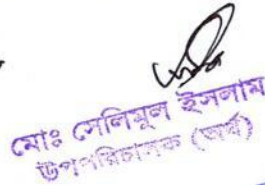 মোঃ সেলিমুল ইসলাম
উপপরিচালক (অর্থ)